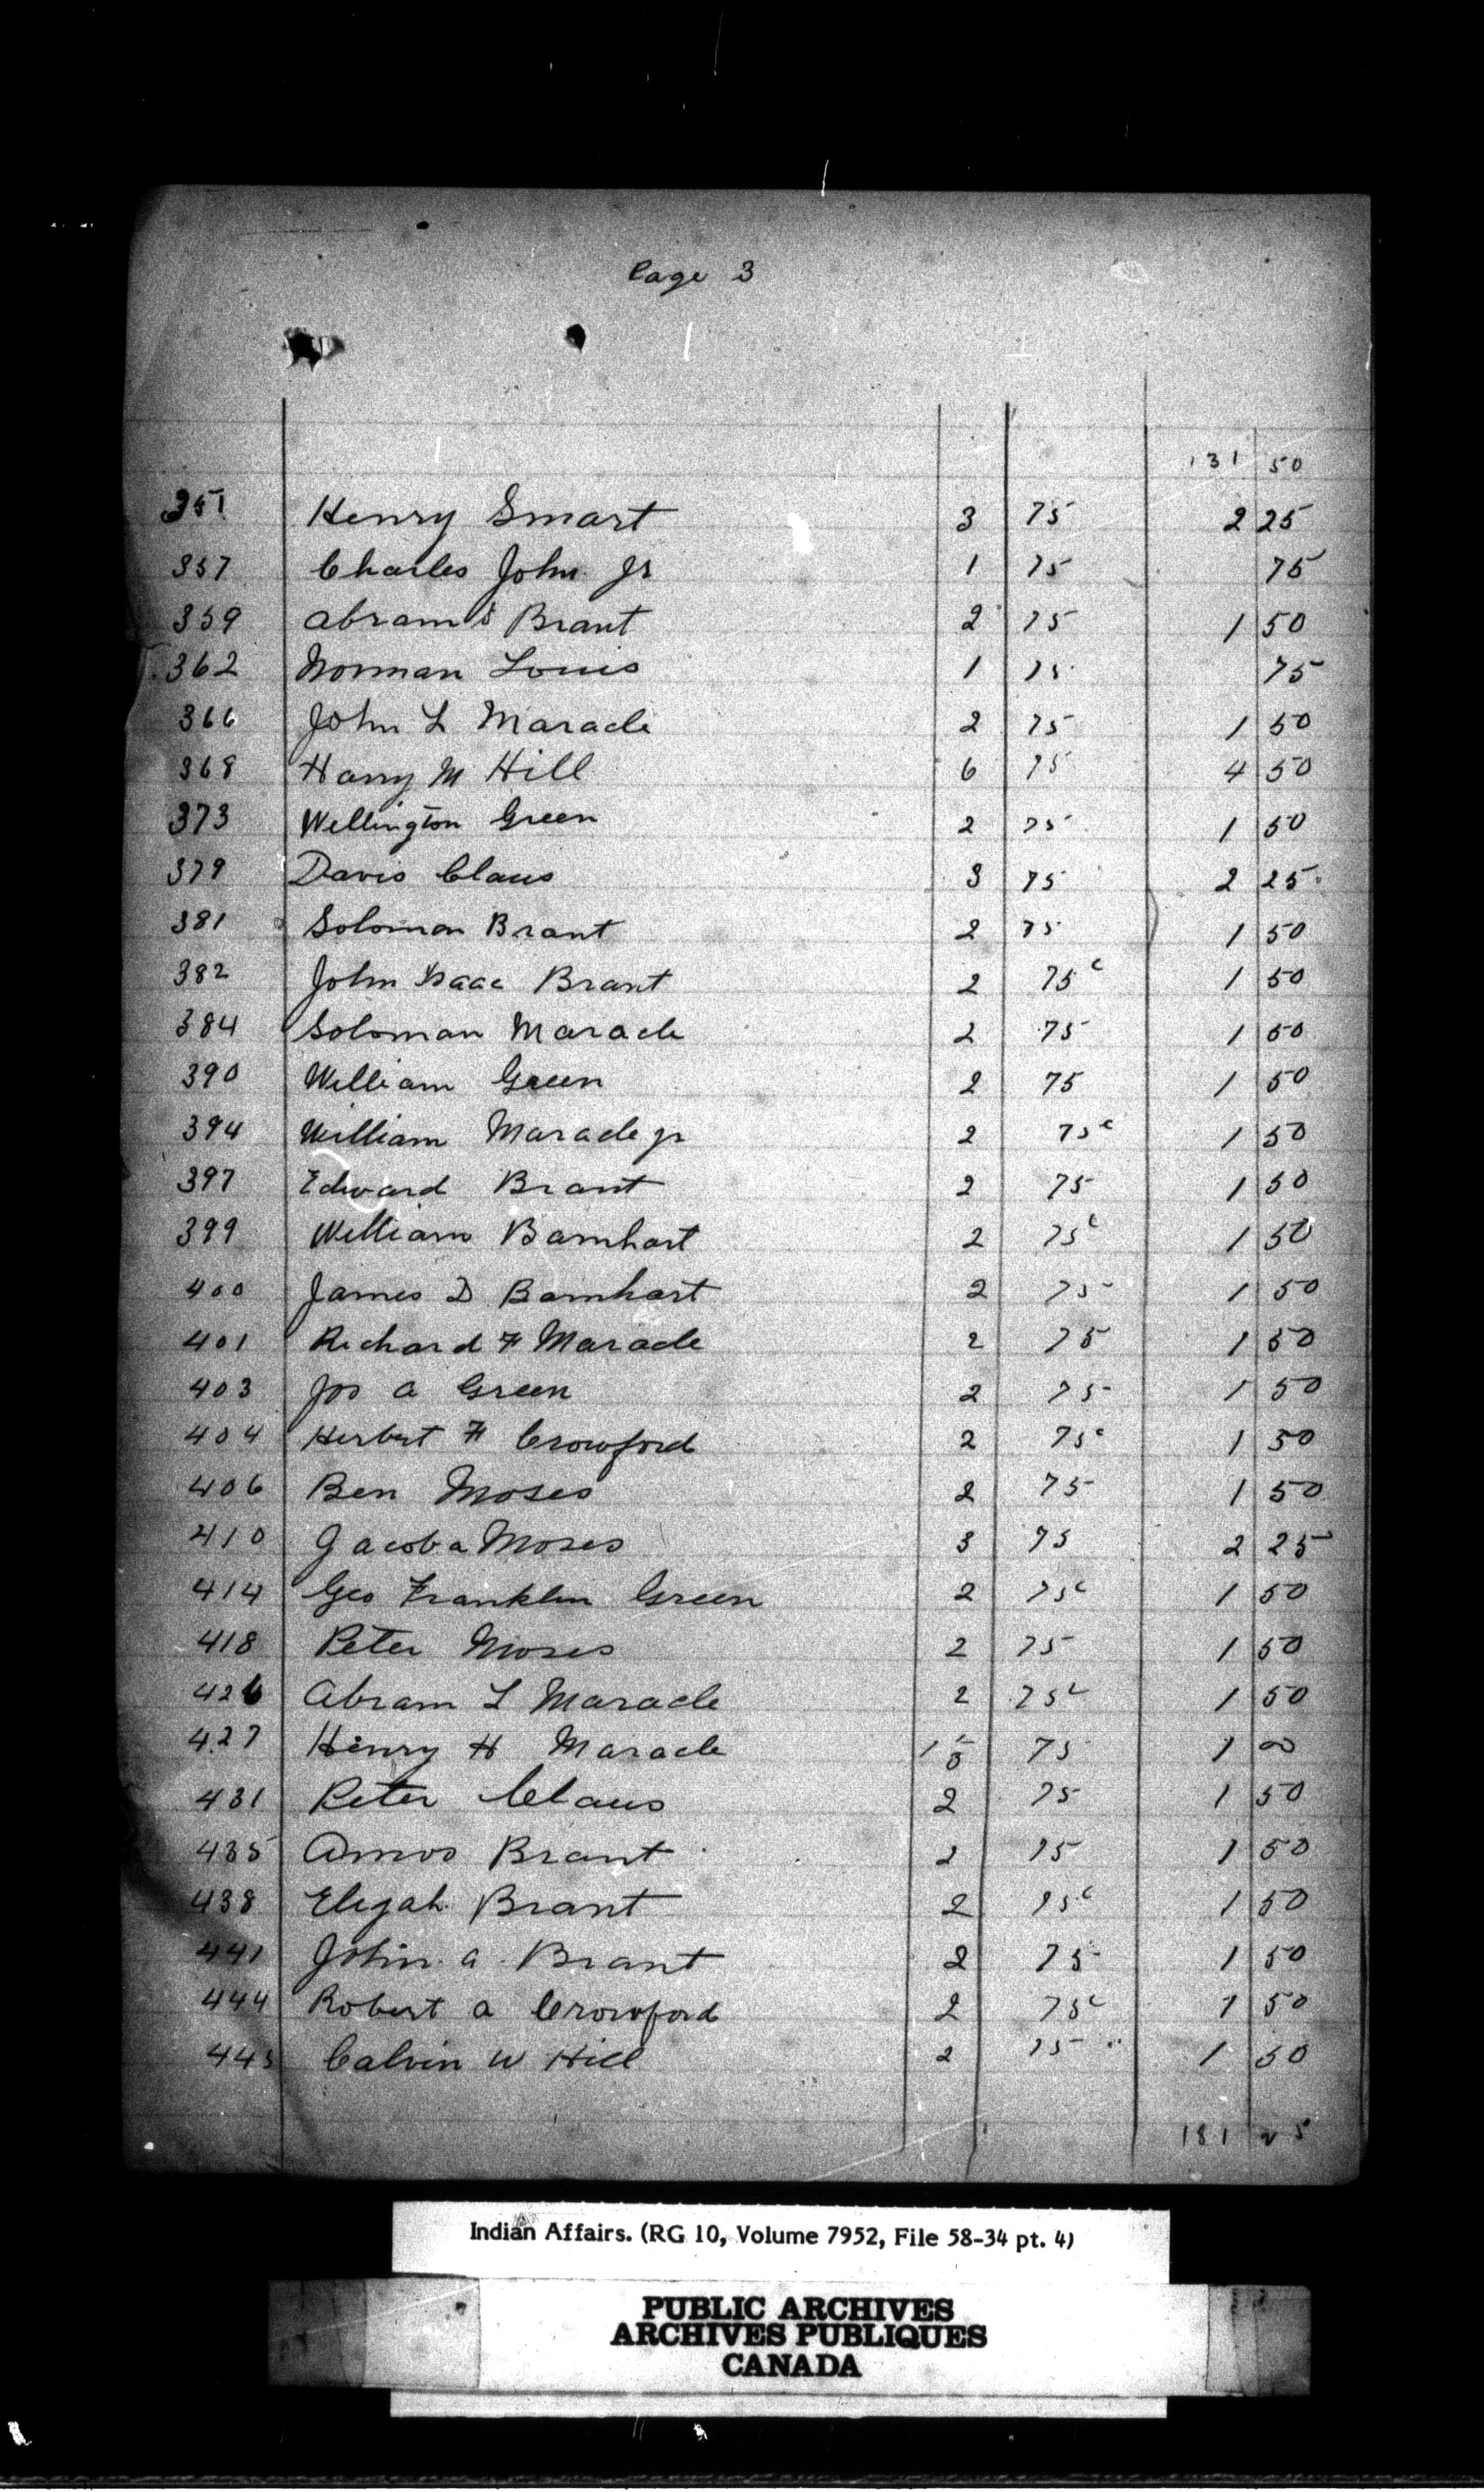 Page 3
131 50
351 Henry Smart 3 75 2 25
357 Charles John Jr 1 75 75
359 Abram S Brant 2 75 1 50
362 Norman Louis 1 75 75
366 John L Maracle 2 75 1 50
368 Harry M Hill 6 75 4 50
373 Wellington Green 2 75 1 50
379 Davis Claus 3 75 2 25
381 Soloman Brant 2 75 1 50
382 John Isaac Brant 2 75c 1 50
384 Soloman Maracle 2 75 1 50
390 William Green 2 75 1 50
394 William Maracle jr 2 75c 1 50
397 Edward Brant 2 75 1 50
399 William Barnhart 2 75c 1 50
400 James D Barnhart 2 75 1 50
401 Richard F Maracle 2 75 1 50
403 Jos A Green 2 75 1 50
404 Herbert F Crowford 2 75c 1 50
406 Ben Moses 2 75 1 50
410 Jacob a Moses 3 75 2 25
414 Geo Franklin Green 2 75c 1 50
418 Peter Moses 2 75 1 50
426 Abram L Maracle 2 75c 1 50
427 Henry H Maracle 75 1 00
431 Peter Claus 2 75 1 50
435 Amos Brant 2 75 1 50
438 Elijah Brant 2 75c 1 50
441 John a Brant 2 75 1 50
444 Robert a Crowford 2 75c 1 50
445 Calvin W Hill 2 75 1 50
181 25
Indian Affairs. (RG 10, Volume 7952, File 58-34 pt. 4)
PUBLIC ARCHIVES
ARCHIVES PUBLIQUES
CANADA